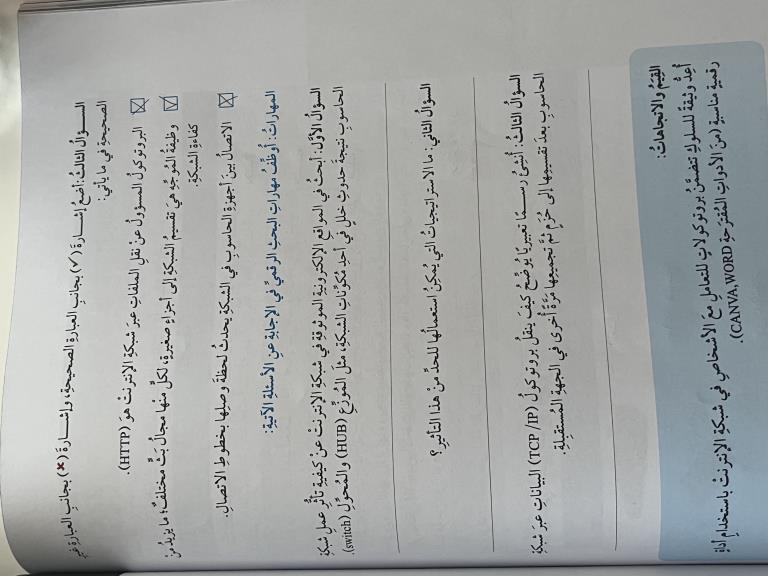 السؤالُ الثالثُ: أضعُ إشارةَ (✓) بجانبِ العبارةِ الصحيحةِ، وإشارةَ (✗) بجانبِ العبارةِ غيرِ
الصحيحةِ في ما يأتي:
البروتوكولُ المسؤولُ عنْ نقلِ الملفاتِ عبرَ شبكةِ الإنترنتْ هوَ (HTTP).
وظيفةُ المُوجِّهِ هيَ تقسيمُ الشبكةِ إلى أجزاءٍ صغيرةٍ، لكلٍّ منْها مجالُ بَثٍّ مختلفٌ؛ ما يزيدُ منْ
كفاءةِ الشبكةِ.
الاتصالُ بينَ أجهزةِ الحاسوبِ في الشبكةِ يحدثُ لحظةَ وصلِها بخطوطِ الاتصالِ.
المهاراتُ: أوظِّفُ مهاراتِ البحثِ الرقميِّ في الإجابةِ عنِ الأسئلةِ الآتيةِ:
السؤالُ الأوَّلُ: أبحثُ في المواقعِ الإلكترونيةِ الموثوقةِ في شبكةِ الإنترنتْ عنْ كيفيةِ تأثُّرِ عملِ شبكةِ
الحاسوبِ نتيجةَ حدوثِ خللٍ في أحدِ مُكوِّناتِ الشبكةِ، مثلَ المُوزِّعِ (HUB) والمُحوِّلِ (switch).
السؤالُ الثاني: ما الاستراتيجياتُ التي يُمكِنُ استعمالُها للحدِّ منْ هذا التأثيرِ؟
السؤالُ الثالثُ: أُنشِئُ رسمًا تعبيريًّا يُوضِّحُ كيفَ ينقلُ بروتوكولُ (TCP /IP) البياناتِ عبرَ شبكةِ
الحاسوبِ بعدَ تقسيمِها إلى حُزَمٍ ثمَّ تجميعِها مَرَّةً أُخرى في الجهةِ المُستقبِلةِ.
القِيَمُ والاتجاهاتُ:
أُعِدُّ وثيقةً للسلوكِ تتضمَّنُ بروتوكولاتٍ للتعاملِ معَ الأشخاصِ في شبكةِ الإنترنتْ باستخدامِ أداةٍ
رقميةٍ مناسبةٍ (منَ الأدواتِ المُقترَحةِ CANVA, WORD).